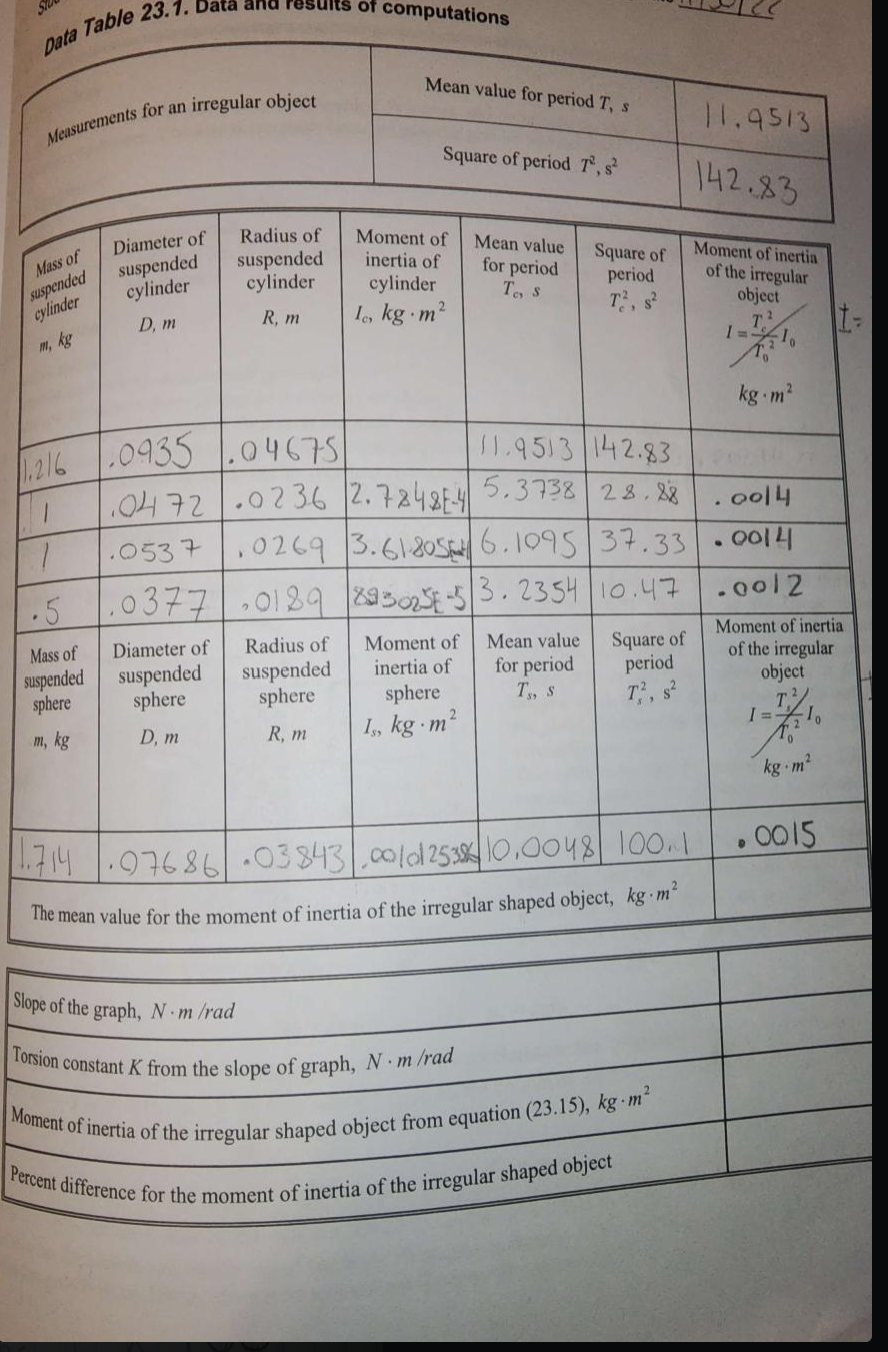 Data Table 23.1. Data and results of computations
Measurements for an irregular object
Mean value for period T, s
11.9513
Square of period T², s²
142.83
Mass of
suspended
cylinder
m, kg
Diameter of
suspended
cylinder
D, m
Radius of
suspended
cylinder
R, m
Moment of
inertia of
cylinder
I_c, kg · m²
Mean value
for period
T_c, s
Square of
period
T_c², s²
Moment of inertia
of the irregular
object
I = T_c²/T_0² I_0
kg · m²
I=
1.216 .0935 .04675 11.9513 142.83
1 .0472 .0236 2.7848E-4 5.3738 28.88 .0014
1 .0537 .0269 3.61805E-4 6.1095 37.33 .0014
.5 .0377 .0189 893025E-5 3.2354 10.47 .0012
Mass of
suspended
sphere
m, kg
Diameter of
suspended
sphere
D, m
Radius of
suspended
sphere
R, m
Moment of
inertia of
sphere
I_s, kg · m²
Mean value
for period
T_s, s
Square of
period
T_s², s²
Moment of inertia
of the irregular
object
I = T_s²/T_0² I_0
kg · m²
1.714 .07686 .03843 .0010125386 10.0048 100.1 .0015
The mean value for the moment of inertia of the irregular shaped object, kg · m²
Slope of the graph, N · m /rad
Torsion constant K from the slope of graph, N · m /rad
Moment of inertia of the irregular shaped object from equation (23.15), kg · m²
Percent difference for the moment of inertia of the irregular shaped object